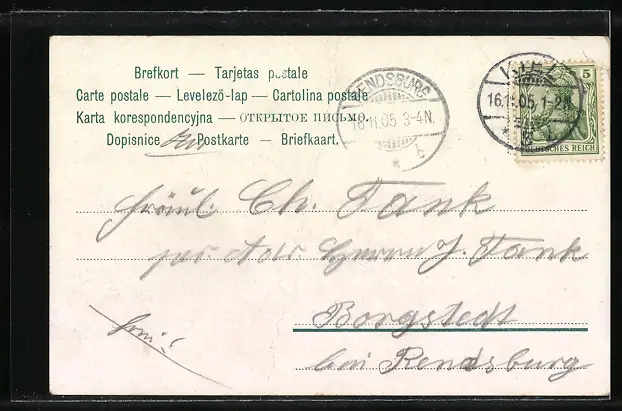 Brefkort — Tarjetas postale
Carte postale — Levelező-lap — Cartolina postale
Karta korespondencyjna — ОТКРЫТОЕ ПИСЬМО.
Dopisnice — Postkarte — Briefkaart.
RENDSBURG
16.11.05 3-4N.
KIEL
16.11.05. 1-2N.
5
DEUTSCHES REICH
Fräul. Ch. Tank
per Adr. Herrn J. Tank
Borgstedt
bei Rendsburg
frei!